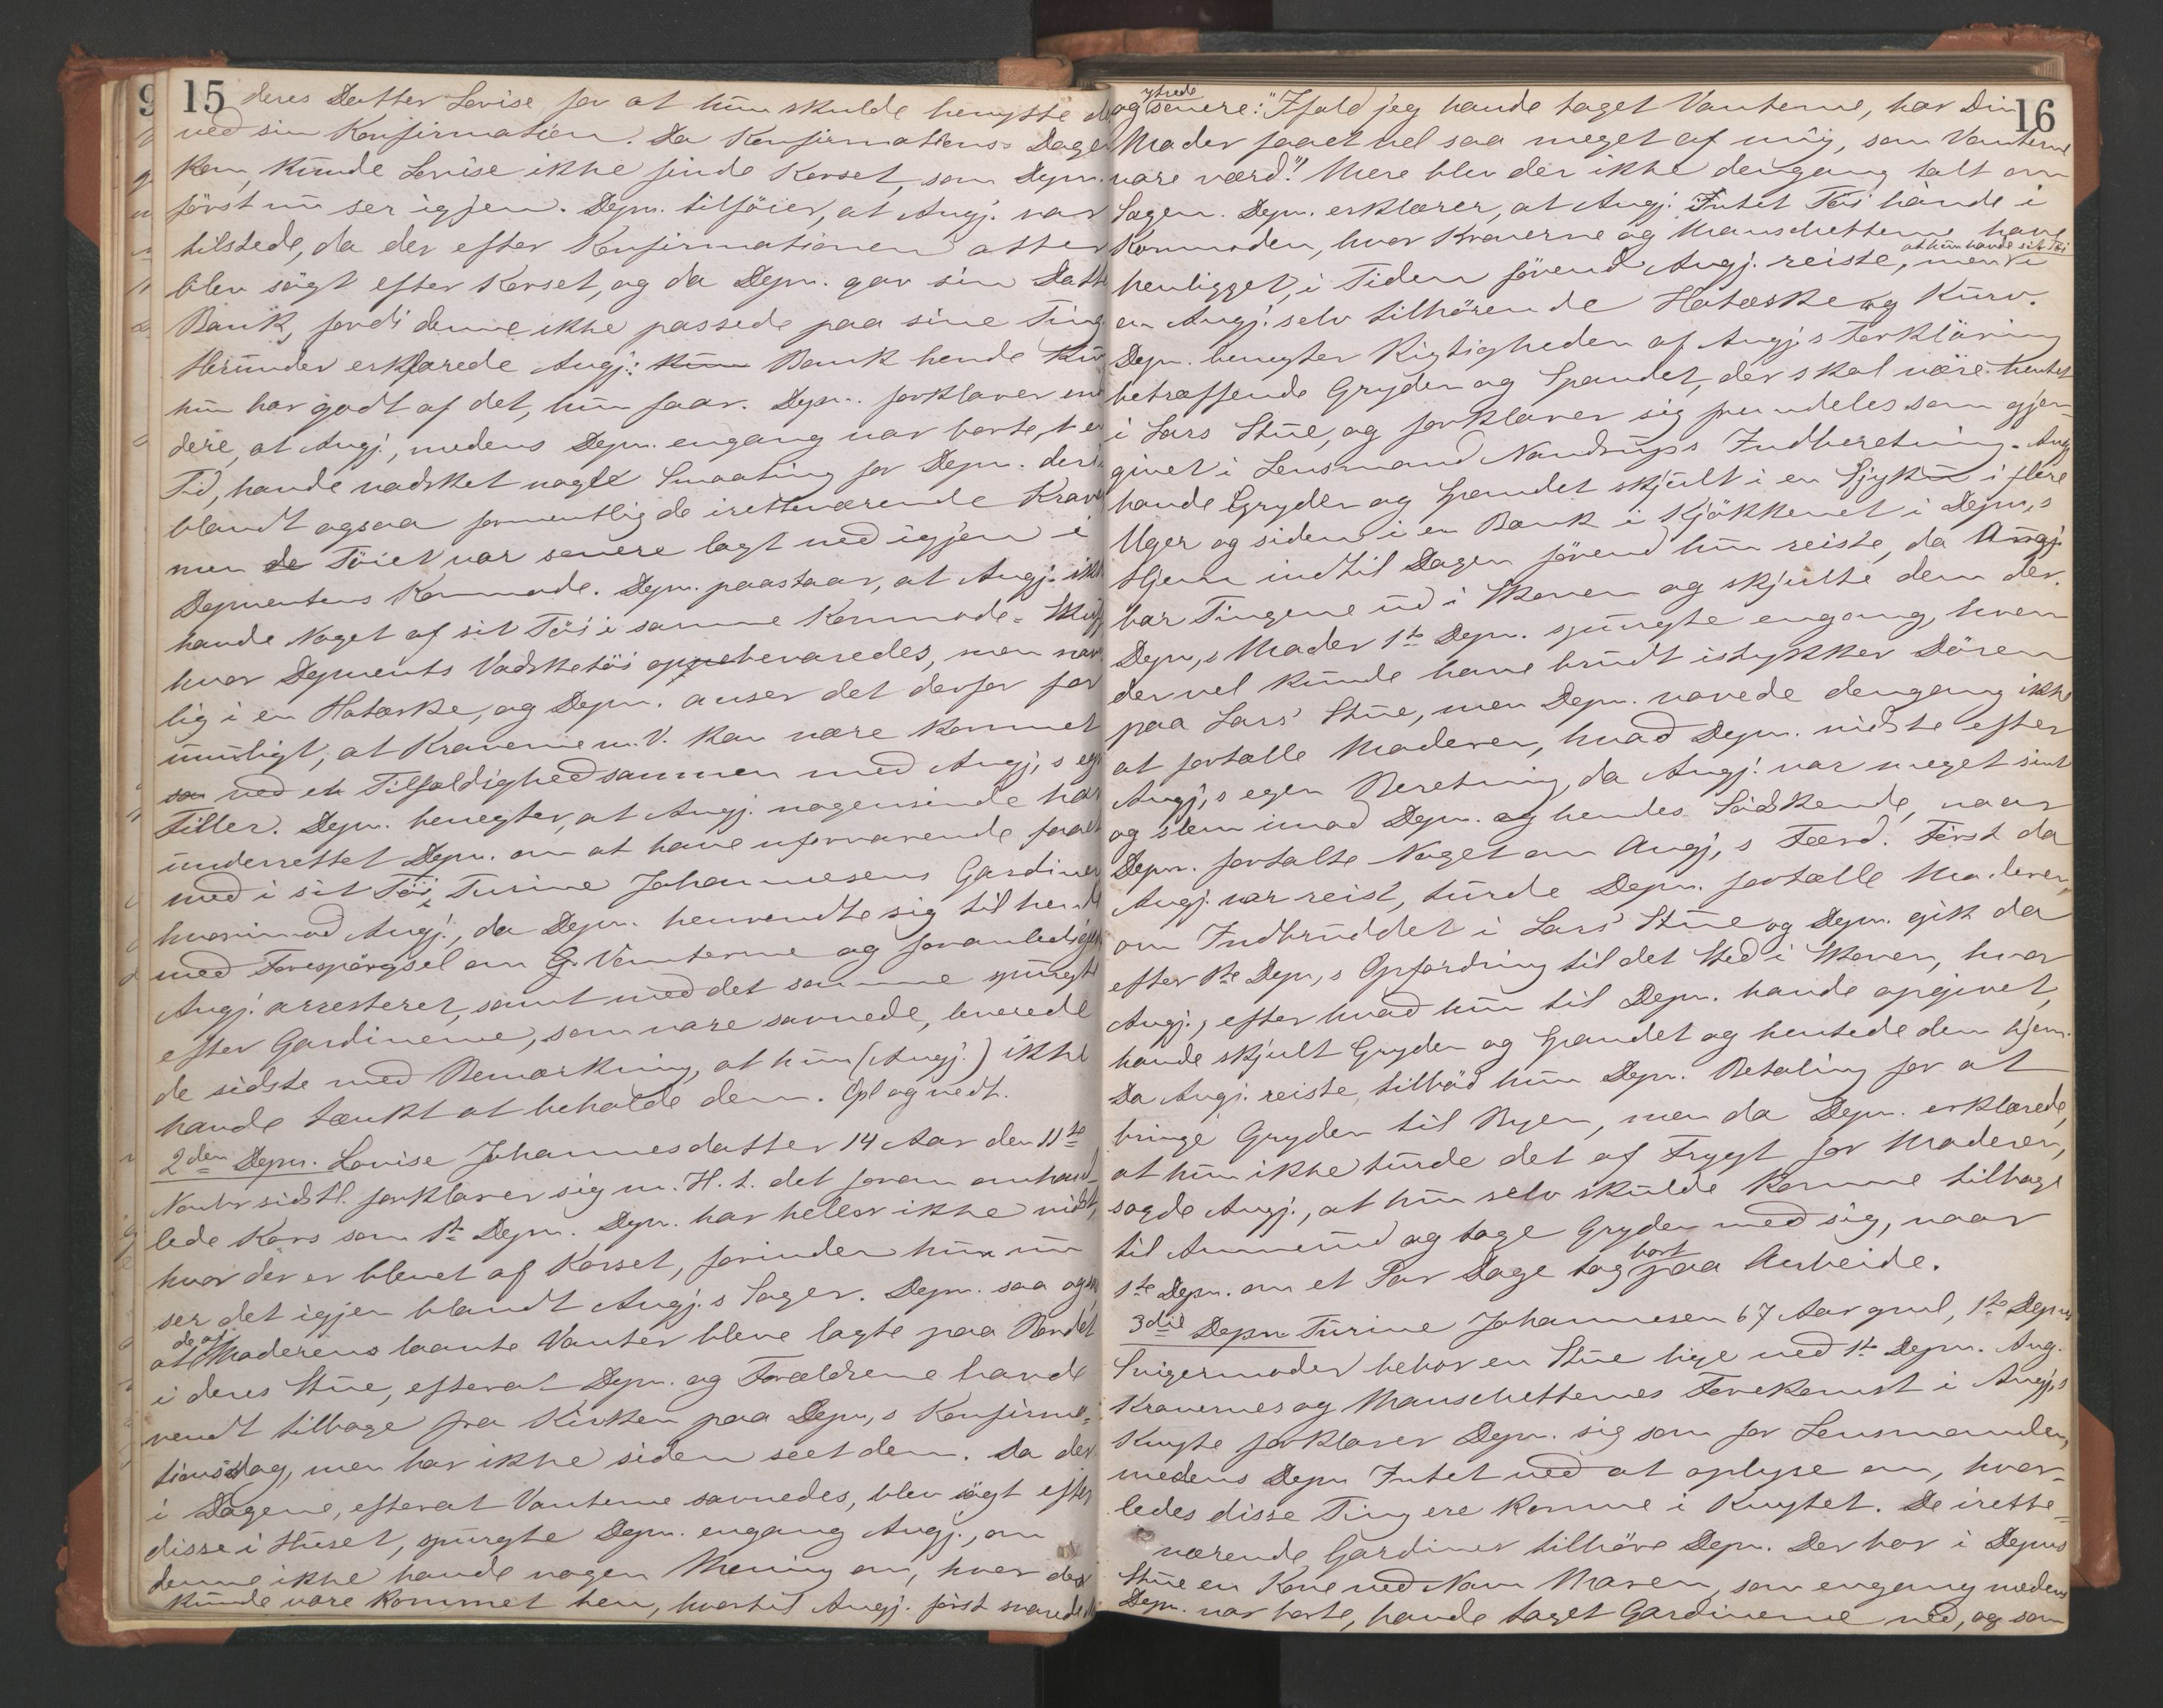 15
deres Datter Lovise for at hun skulde benytte
ved sin Konfirmation. Da Konfirmations-Dagen
kom, kunde Lovise ikke finde Korset, som Depn.
först nu ser igjen. Depn. tilföier, at Angj. var
tilstede, da der efter Konfirmationen atter
blev sögt efter Korset, og da Depn. gav sin Datter
Bank, fordi denne ikke passede paa sine Ting.
Herunder erklærede Angj.: Bank hende
hun har godt af det, hun faar. Depn. forklarer
dere, at Angj., medens Depn. engang var borte, en
Tid, havde vadsket nogle Smaating for Depn. deri-
blandt ogsaa formentlig de iretteværende Kraver
men Töiet var senere lagt ned igjen i
Deponentens Kommode. Depn. paastaar, at Angj. ikke
havde Noget af sit Töi i samme Kommode-Skuffe
hvor Deponents Vadsketöi opbevaredes, men
lig i en Hatæske, og Depn. anser det derfor for
umuligt, at Kraverne m. V. kan være kommet
ved et Tilfældighed sammen med Angj,s egne
Filler. Depn. benegter, at Angj. nogensinde har
underrettet Depn. om at have uforvarende faaet
med i sit Töi, Turine Johannesens Gardiner
hvorimod Angj., da Depn. henvendte sig til hende
med Forespörgsel om Vanterne og foranledigede
Angj. arresteret, samt med det samme spurgte
efter Gardinerne, som vare savnede, leverede
de sidste med Bemærkning, at hun (Angj.) ikke
havde tænkt at beholde dem. Opl og vedt.
2den Depn. Lovise Johannesdatter 14 Aar den 11te
Novbr sidstl. forklarer sig m. H. t. det foran omhand-
lede Kors som 1ste Depn. Depn. har heller ikke vidst,
hvor der er blevet af Korset, forinden hun nu
ser det igjen blandt Angj.s Sager. Depn. saa ogsaa,
at de af Moderens laante Vanter bleve lagte paa Bordet
i deres Stue, efterat Depn. og Forældrene havde
vendt tilbage fra Kirken paa Depn,s Konfirma-
tionsdag, men har ikke siden seet dem. Da der
i Dagene, efterat Vanterne savnedes, blev sögt efter
disse i Huset, spurgte Depn. engang Angj., om
denne ikke havde nogen Mening om, hvor de
kunde være kommet hen, hvortil Angj. först svarede
16
og ytrede senere: "Ifald jeg havde taget Vanterne, har Din
Moder faaet vel saa meget af mig, som Vanterne
vare værd". Mere blev der ikke dengang talt om
Sagen. Depn. erklærer, at Angj. Intet Töi havde i
Kommoden, hvor Kraverne og Manschetterne have
henligget, i Tiden förend Angj. reiste, men at hun havde sit Töi i
en Angj. selv tilhörende Hatæske og Kurv.
Depn. benegter Rigtigheden af Angj,s Forklaring
betræffende Gryden og Spandet, der skal være hentet
i Lars Stue, og forklarer sig fremdeles som gjen-
givet i Lensmand Nandrups Indberetning. Angj
havde Gryden og Spandet skjult i en i flere
Uger og siden i en Bank i Kjökkenet i Depn,s
Hjem indtil Dagen förend hun reiste, da Angj.
bar Tingene ud i Skoven og skjulte dem der.
Depn,s Moder 1ste Depn. spurgte engang, hvem
der vel kunde have brudt istykker Dören
paa Lars' Stue, men Depn. vovede dengang ikke
at fortælle Moderen, hvad Depn. vidste efter
Angj,s egen Beretning, da Angj. var meget sint
og slem imod Depn. og hendes Södskende, naar
Depn. fortalte Noget om Angj,s Færd. Först da
Angj. var reist, turde Depn. fortælle Moderen,
om Indbruddet i Lars' Stue og Depn. gik da
efter 1ste Depn,s Opfordring til det Sted i Skoven, hvor
Angj., efter hvad hun til Depn. havde opgivet,
havde skjult Gryden og Spandet og hentede dem hjem.
Da Angj. reiste, tilböd hun Depn. Betaling for at
bringe Gryden til Byen, men da Depn. erklærede,
at hun ikke turde det af Frygt for Moderen,
sagde Angj., at hun selv skulde komme tilbage
til Ammerud og tage Gryden med sig, naar
1ste Depn. om et Par Dage tog bort paa Arbeide.
3die Depn. Turine Johannesen 67 Aar gml, 1ste Depns
Svigermoder bebor en Stue lige ved 1ste Depn. Ang.
Kravernes og Manschetternes Forekomst i Angj,s
Knyte forklarer Depn. sig som for Lensmanden,
medens Depn Intet ved at oplyse om, hvor-
ledes disse Ting ere komne i Knytet. De irette-
værende Gardiner tilhöre Depn. Der bor i Depns
Stue en Kone ved Navn Maren, som engang medens
Depn. var borte, havde taget Gardinerne ned, og som